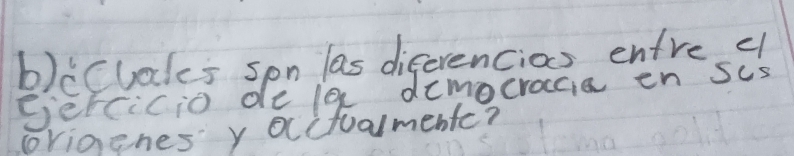 b) ¿Cuales son las diferencias entre el
Ejercicio de la democracia en sus
origenes y actualmente?